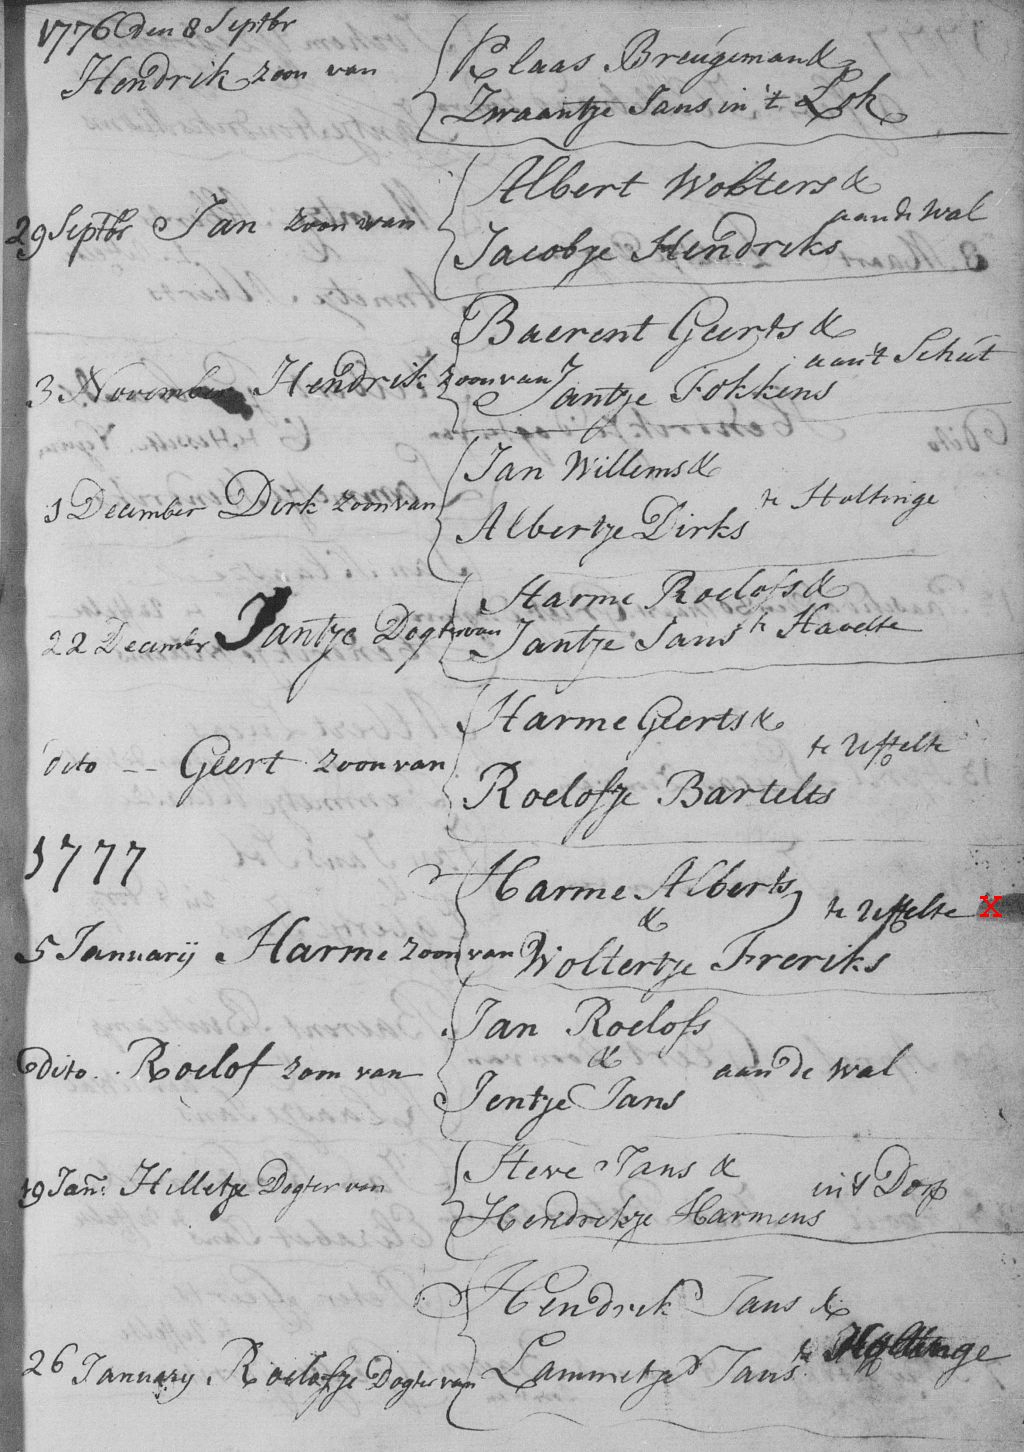 1776 den 8 Septbr
Hendrik zoon van
Klaas Breugeman &
Zwaantje Jans in 't Lok
29 Septbr Jan zoon van
Albert Wolters &
aan de Wal
Jacobje Hendriks
Baerent Geerts &
3 November Hendrik zoon van
aan't Schut
Jantje Fokkens
Jan Willems &
1 December Dirk zoon van
te Holtinge
Albertje Dirks
Harme Roelofs &
22 December Jantje Dogter van
Jantje Jans te Havelte
Harme Geerts &
dito -- Geert zoon van
te Uffelte
Roelofje Bartelts
1777
Harme Alberts
&
te Uffelte X
5 Januarij Harme zoon van
Woltertje Freriks
Jan Roelofs
&
dito Roelof zoon van
aan de Wal
Jentje Jans
Steve Jans &
19 Jann: Hilletje Dogter van
in 't Dorp
Hendrikje Harmens
Hendrik Jans &
26 January Roelofje Dogter van
Lammetje Jans te Holtinge